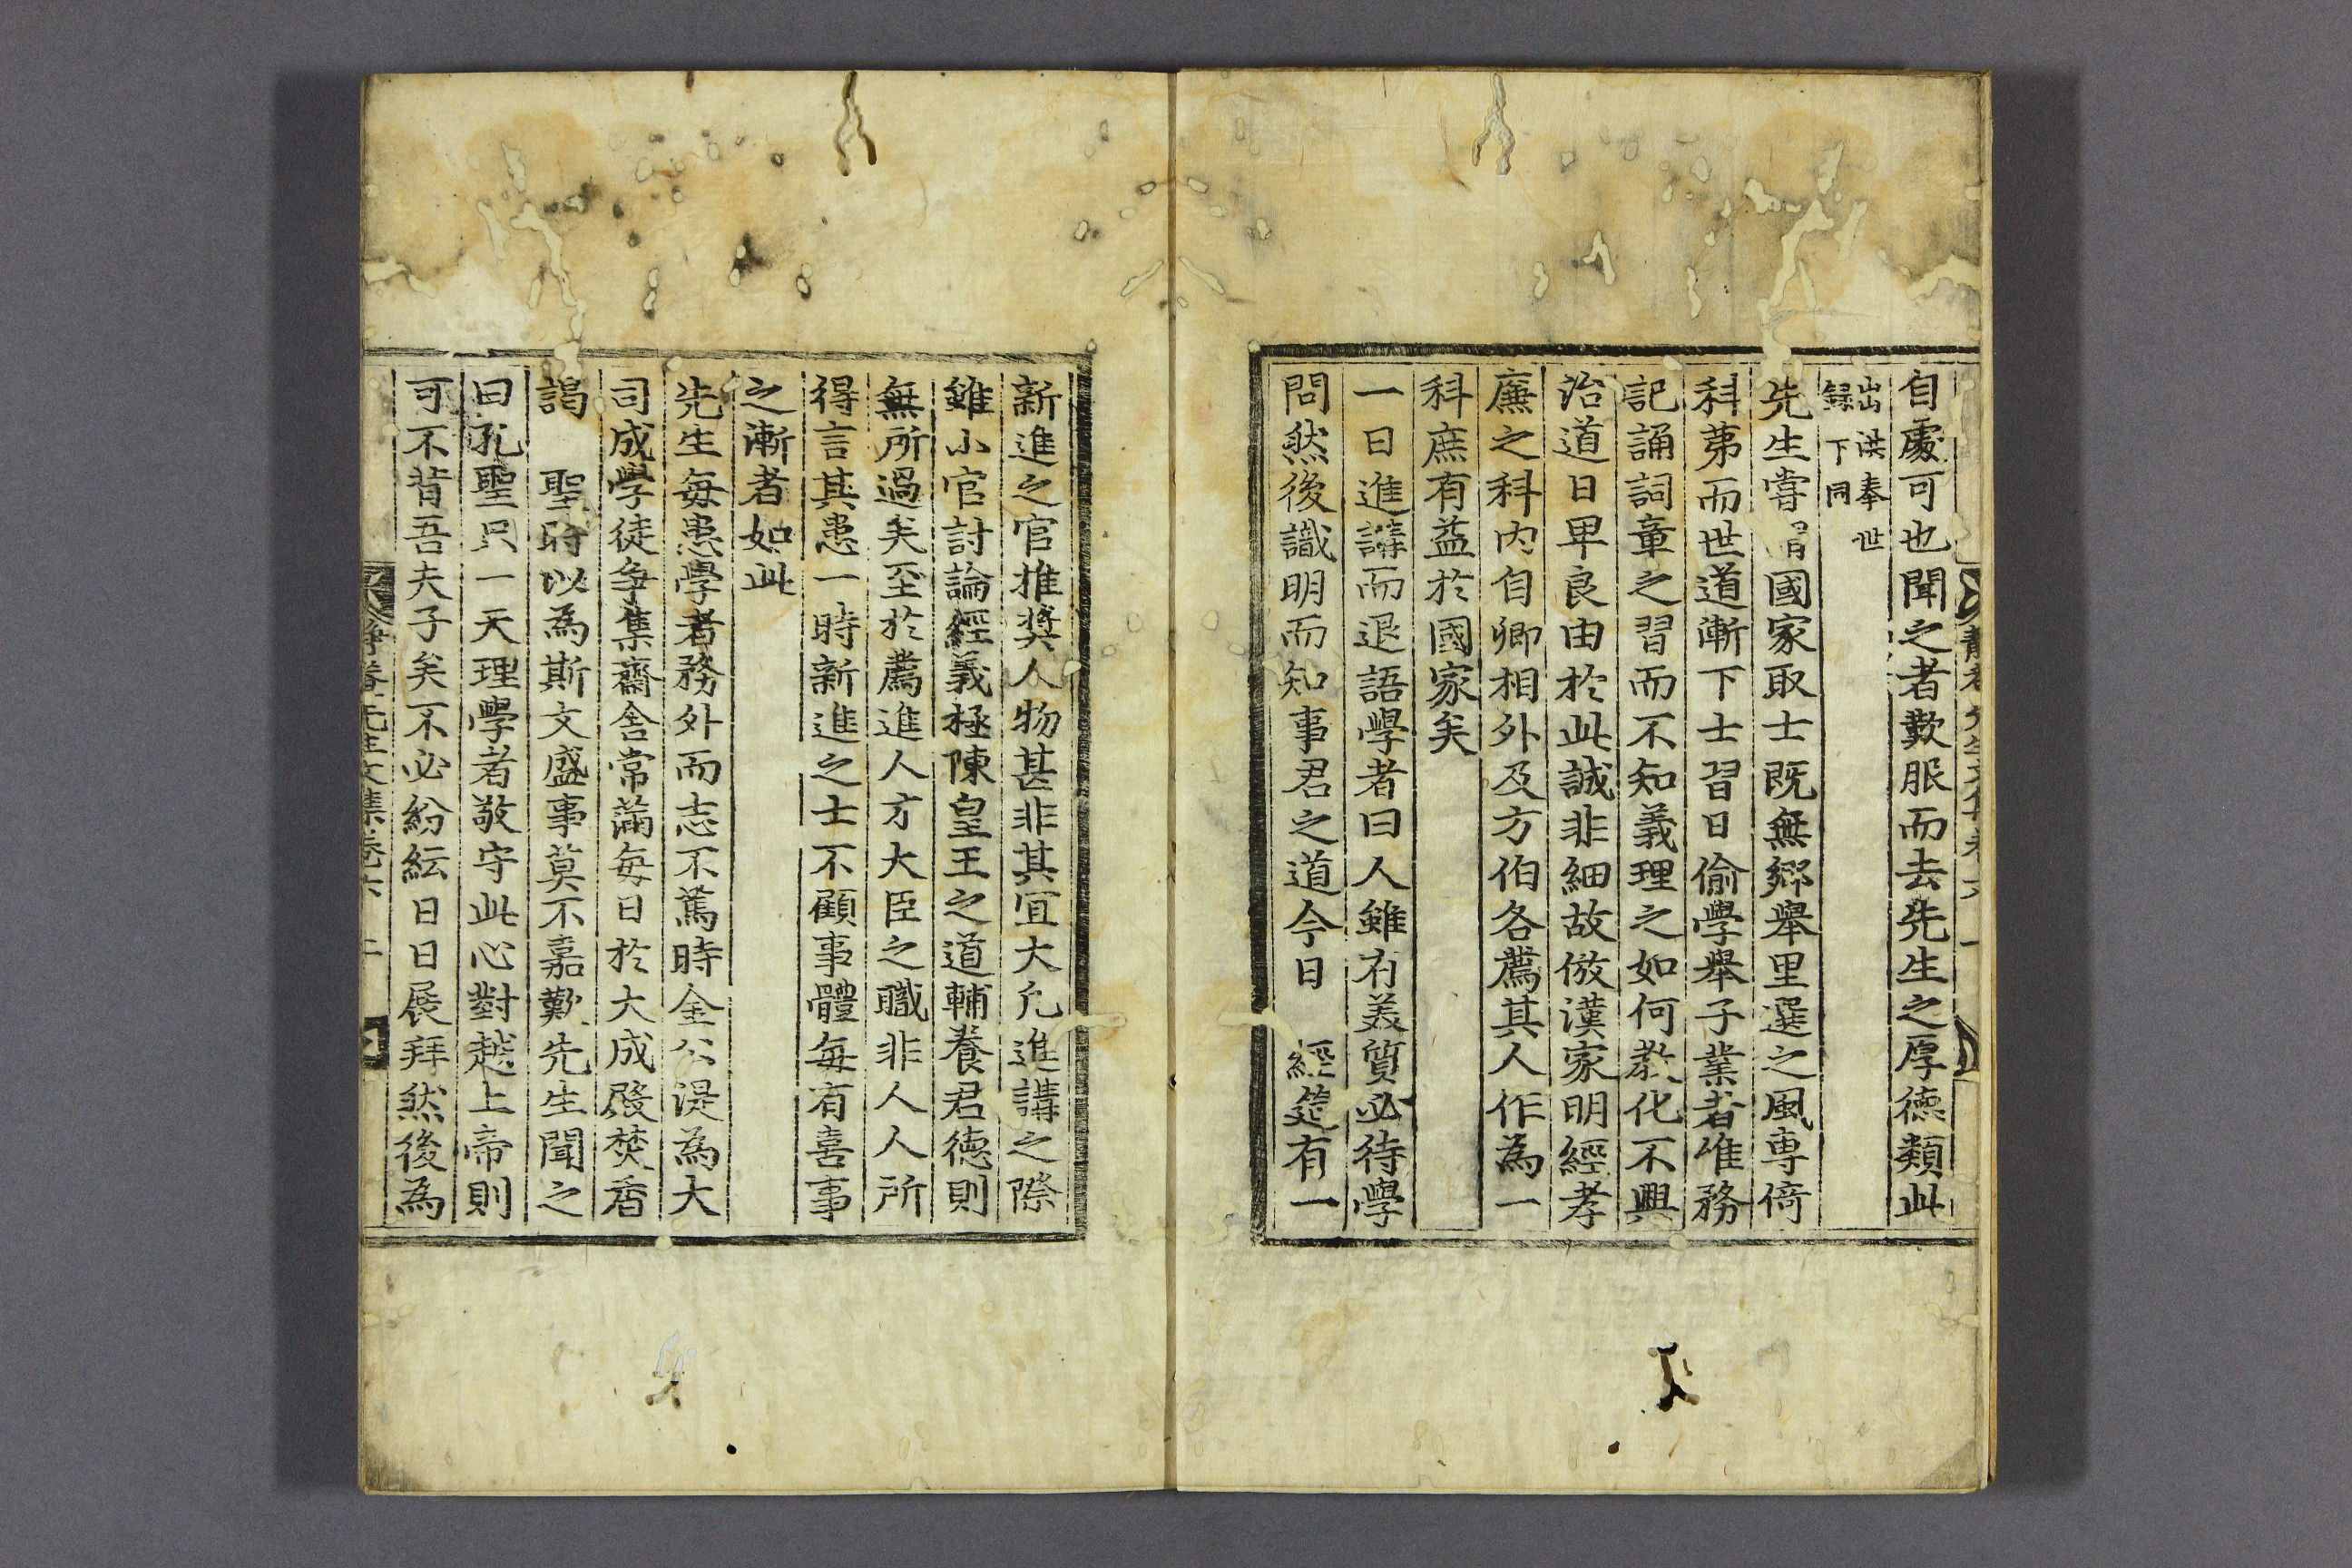 自處可也聞之者歎服而去先生之厚德類此
出洪奉世
録下同
先生嘗謂國家取士既無鄉舉里選之風專倚
科第而世道漸下士習日偷學舉子業者唯務
記誦詞章之習而不知義理之如何教化不興
治道日卑良由於此誠非細故倣漢家明經孝
廉之科內自卿相外及方伯各薦其人作為一
科庶有益於國家矣
一日進講而退語學者曰人雖有美質必待學
問然後識明而知事君之道今日 經筵有一
新進之官推奬人物甚非其宜大凡進講之際
雖小官討論經義極陳皇王之道輔養君德則
無所過矣至於薦進人才大臣之職非人人所
得言其患一時新進之士不顧事體每有喜事
之漸者如此
先生每患學者務外而志不篤時金公湜為大
司成學徒爭集齋舍常滿每日於大成殿焚香
謁 聖時以為斯文盛事莫不嘉歎先生聞之
曰孔聖只一天理學者敬守此心對越上帝則
可不背吾夫子矣不必紛紜日日展拜然後為
先生文集卷六 二